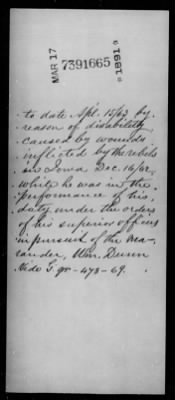 MAR 17
7391665
"1891"
to date Apl. 15/63 by
reason of disability
caused by wounds
inflicted by the rebels
in Iowa Dec. 16/62,
while he was in the
performance of his
duty under the orders
of his superior officers
in pursuit of the ma-
rauder, Wm. Dunn
Vide G gr - 473 - 69.